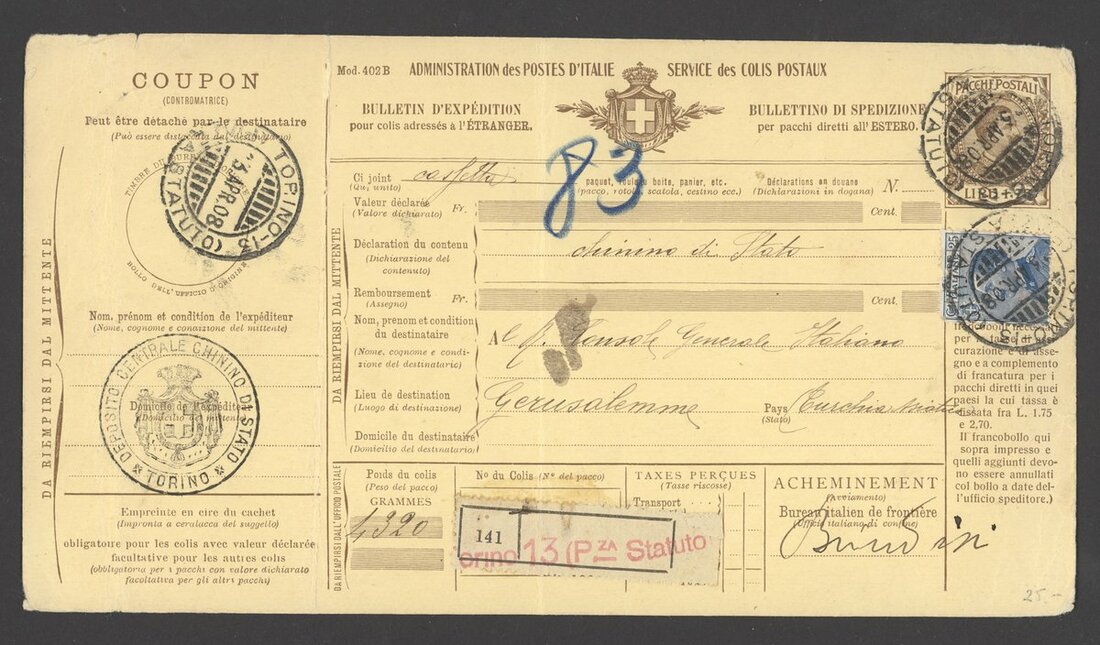 COUPON
(CONTROMATRICE)
Peut être détaché par le destinataire
(Può essere distaccata dal destinatario)
TIMBRE DU BUREAU
BOLLO DELL'UFFICIO D'ORIGINE
TORINO-13
(STATUTO)
3.APR.08
Nom, prénom et condition de l'expéditeur
(Nome, cognome e condizione del mittente)
DEPOSITO CENTRALE CHININO DI STATO
TORINO
Domicile de l'expéditeur
(Domicilio del mittente)
DA RIEMPIRSI DAL MITTENTE
Empreinte en cire du cachet
(Impronta a ceralacca del suggello)
obligatoire pour les colis avec valeur déclarée
facultative pour les autres colis
(obbligatoria per i pacchi con valore dichiarato
facoltativa per gli altri pacchi)
Mod. 402 B
ADMINISTRATION des POSTES D'ITALIE
SERVICE des COLIS POSTAUX
BULLETIN D'EXPÉDITION
pour colis adressés à l'ÉTRANGER.
BULLETTINO DI SPEDIZIONE
per pacchi diretti all'ESTERO.
83
Ci joint cassetta paquet, rouleau boite, panier, etc. Déclarations en douane N.
(Qui, unito) (pacco, rotolo, scatola, cestino ecc.) (Dichiarazioni in dogana)
Valeur déclarée Fr. Cent.
(Valore dichiarato)
Déclaration du contenu chinino di Stato
(Dichiarazione del
contenuto)
Remboursement Fr. Cent.
(Assegno)
Nom, prenom et condition
du destinataire
A Console Generale Italiano
(Nome, cognome e condizione
del destinatario)
Lieu de destination Gerusalemme Pays Turchia
(Luogo di destinazione) (Stato)
Domicile du destinataire
(Domicilio del destinatario)
DA RIEMPIRSI DAL MITTENTE
DA RIEMPIRSI DALL'UFFICIO POSTALE
Poids du colis
(Peso del pacco)
GRAMMES
4,320
No du Colis (N° del pacco)
141
orino 13 (PZA Statuto
TAXES PERÇUES
(Tasse riscosse)
Transport
ACHEMINEMENT
(Avviamento)
Bureau italien de frontière
(Ufficio italiano di confine)
Brindisi
PACCHI POSTALI
TORINO-13
(STATUTO)
3.APR.08
TORINO-13
(STATUTO)
APR.08
per le tasse di assicurazione
e di assegno
e a complemento
di francatura per i
pacchi diretti in quei
paesi la cui tassa è
fissata fra L. 1.75
e 2,70.
Il francobollo qui
sopra impresso e
quelli aggiunti devono
essere annullati
col bollo a data dell'ufficio
speditore.)
25.-